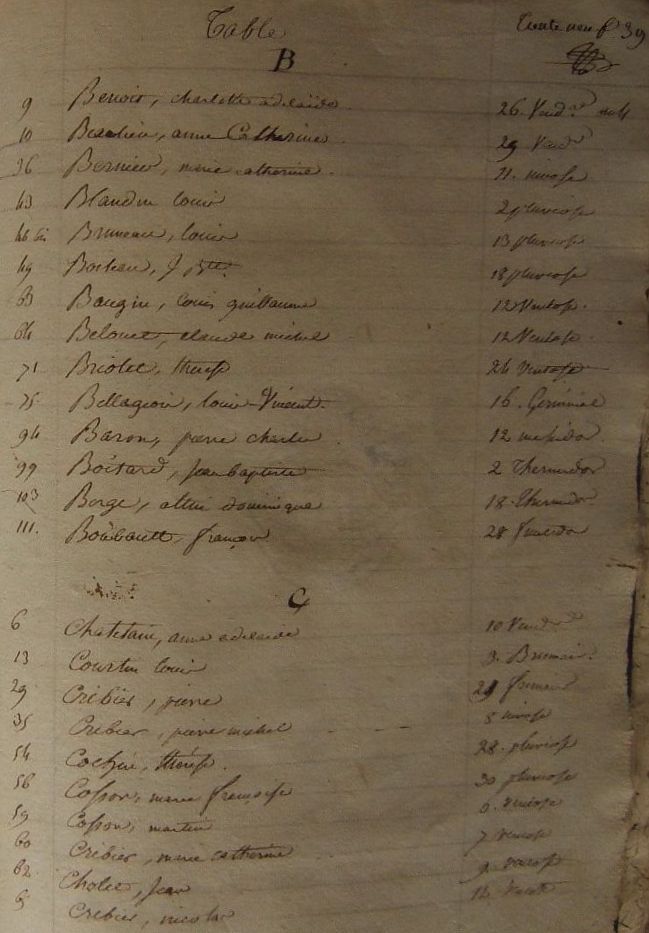 Table
trente neuf f. 39
B
9 Benoist, charlotte adelaïde 26 Vend.re
10 Beaulieu, anne Catherine 29 Vend.re
36 Bernier, marie catherine. 11. nivose
43 Blandin louis 2 pluviose
46 bis Bruneau, louis 13 pluviose
49 Boileau, J Bte. 18 pluviose
63 Baugin, louis guillaume 12 Ventose.
64 Belouet, claude michel 12 Ventose.
71 Briolet, therese 26 Ventose
75 louis Vincent. 16. Germinal
94 Baron, pierre charles 12 messidor
99 Boitard, Jean baptiste 2 Thermidor
103 Borge, dominique 18. Thermidor
111. françois 28
C
6 Chatelain, anne adelaide 10 Vend.re
13 Courtin louis 3. Brumaire.
29 Crébier, pierre 29 frimaire
35 Crebier, pierre michel 8 nivose
54 thérése. 28. pluviose
56 Cosson, marie françoise 30 pluviose
59 Cosson, martin 6. ventose
60 Crébier, marie catherine 7 ventose
62. Cholet, Jean 9. ventose
65 Crebier, nicolas 14 ventose